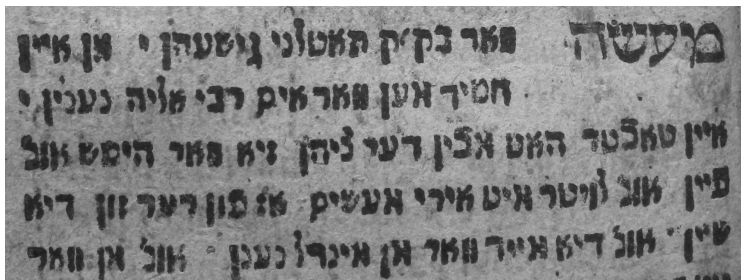 מעשה וואר בק״ק תאטלני גישעהן י מן איין
חסיד מען וואר אים רבי אליה נענין י
איין טאכטר האט מאכין דער ציהן זיא וואר היפש אונ'
פיין אונ' לויטר מיט אירי מעשים אז פון דער זון דיא
שיין אונ' דיא מייד וואר מן אינדל נענן אונ' מן וואר